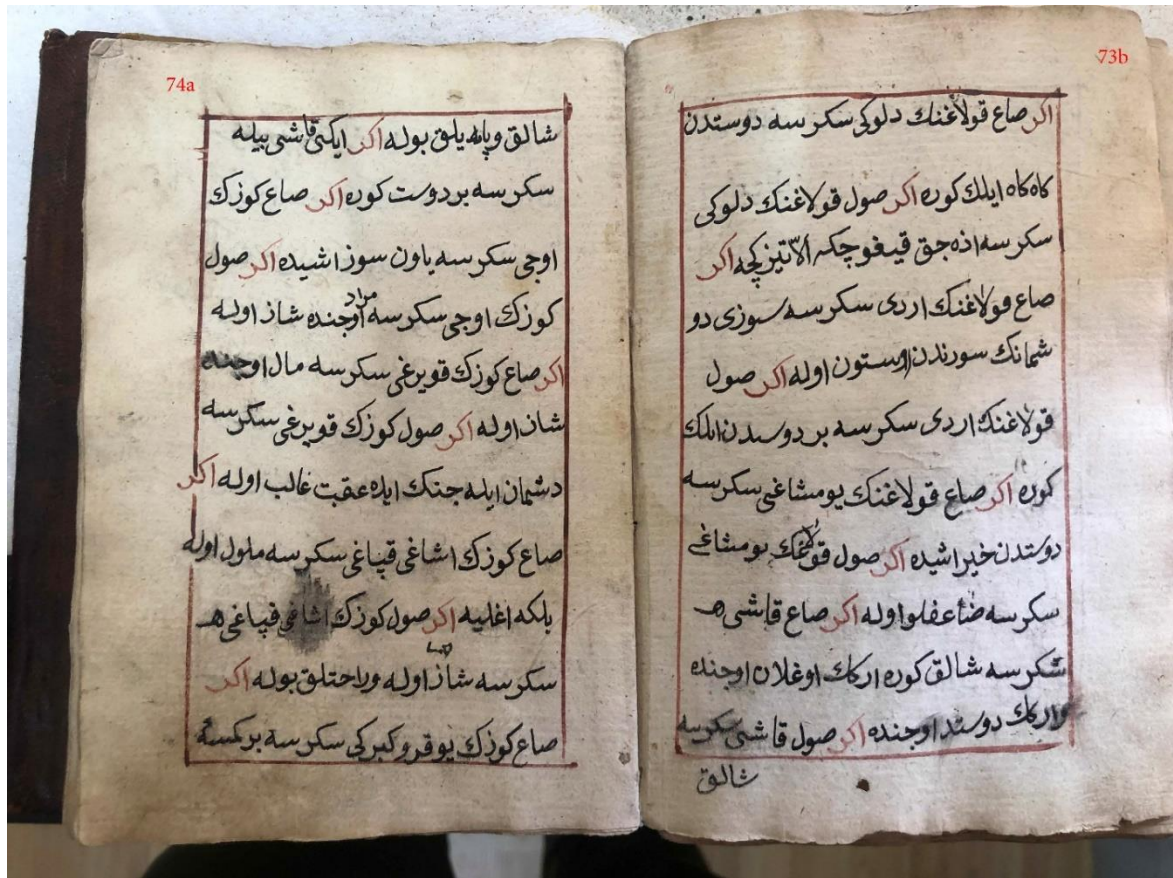 73b
اكر صاغ قولاغنك دلوكی سكرسه دوستدن
كاه كاه ایلك كوره اكر صول قولاغنك دلوكی
سكرسه اذه جق قیغو چكه الا تیز كچه اكر
صاغ قولاغنك اردی سكرسه سوزی دو
شمانك سورندن اوستون اوله اكر صول
قولاغنك اردی سكرسه بر دوستدن ایلك
كوره اكر صاغ قولاغنك یومشاغی سكرسه
دوستدن خبر اشیده اكر صول قولاغنك یومشاغی
سكرسه اوله اكر صاغ قاشی هـ
شكرسه شالق كوره اركك اوغلان اوجنده
واركك دوستد اوجنده اكر صول قاشی سكرسه
شالق
74a
شالق و یایلق بوله اكر ایكی قاشی بیله
سكرسه بر دوست كوره اكر صاغ كوزك
اوجی سكرسه یاون سوز اشیده اكر صول
كوزك اوجی سكرسه مراد اوجنده شاذ اوله
اكر صاغ كوزك قویرغی سكرسه مال اوجنده
شاذ اوله اكر صول كوزك قویرغی سكرسه
دشمان ایله جنك ایده عقبت غالب اوله اكر
صاغ كوزك اشاغی قپاغی سكرسه ملول اوله
بلكه اغلیه اكر صول كوزك اشاغی قپاغی هـ
سكرسه شاذ اوله و راحتلق بوله اكر
صاغ كوزك یوقرو كبركی سكرسه بر كمسه